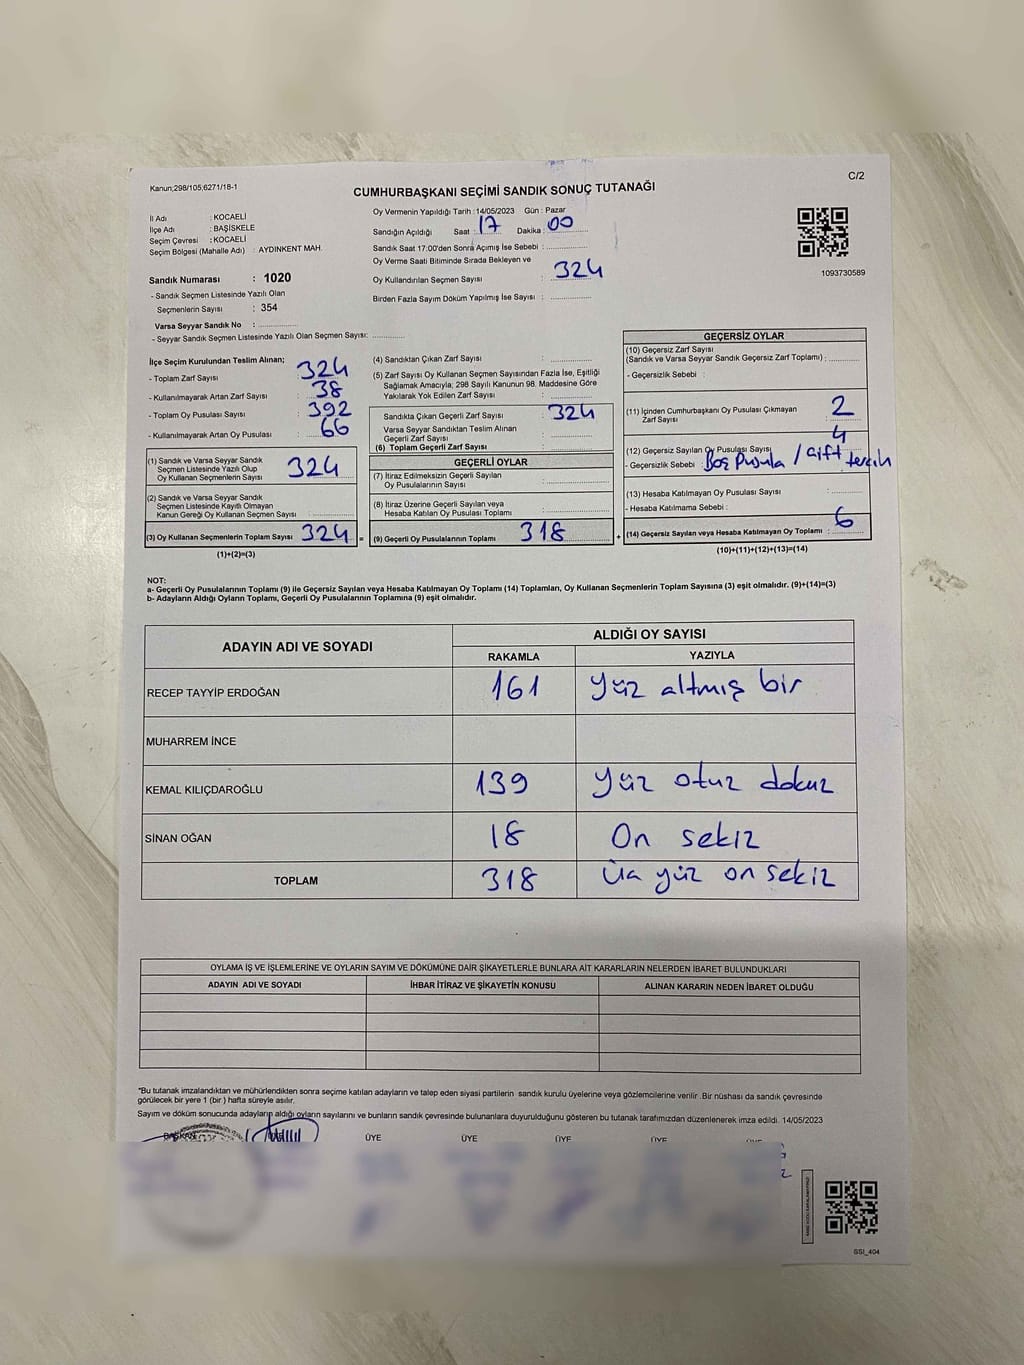 Kanun;298/105;6271/18-1
C/2
CUMHURBAŞKANI SEÇİMİ SANDIK SONUÇ TUTANAĞI
İl Adı : KOCAELİ
İlçe Adı : BAŞİSKELE
Seçim Çevresi : KOCAELİ
Seçim Bölgesi (Mahalle Adı) : AYDINKENT MAH.
Sandık Numarası : 1020
- Sandık Seçmen Listesinde Yazılı Olan
Seçmenlerin Sayısı : 354
Varsa Seyyar Sandık No :
- Seyyar Sandık Seçmen Listesinde Yazılı Olan Seçmen Sayısı:
Oy Vermenin Yapıldığı Tarih : 14/05/2023 Gün : Pazar
Sandığın Açıldığı Saat : 17 Dakika : 00
Sandık Saat 17:00'den Sonra Açımış İse Sebebi :
Oy Verme Saati Bitiminde Sırada Bekleyen ve
Oy Kullandırılan Seçmen Sayısı : 324
Birden Fazla Sayım Döküm Yapılmış İse Sayısı :
1093730589
İlçe Seçim Kurulundan Teslim Alınan;
- Toplam Zarf Sayısı : 324
- Kullanılmayarak Artan Zarf Sayısı : 38
- Toplam Oy Pusulası Sayısı : 392
- Kullanılmayarak Artan Oy Pusulası : 66
(1) Sandık ve Varsa Seyyar Sandık
Seçmen Listesinde Yazılı Olup
Oy Kullanan Seçmenlerin Sayısı : 324
(2) Sandık ve Varsa Seyyar Sandık
Seçmen Listesinde Kayıtlı Olmayan
Kanun Gereği Oy Kullanan Seçmen Sayısı :
(3) Oy Kullanan Seçmenlerin Toplam Sayısı : 324 =
(1)+(2)=(3)
(4) Sandıktan Çıkan Zarf Sayısı :
(5) Zarf Sayısı Oy Kullanan Seçmen Sayısından Fazla İse, Eşitliği
Sağlamak Amacıyla; 298 Sayılı Kanunun 98. Maddesine Göre
Yakılarak Yok Edilen Zarf Sayısı :
Sandıkta Çıkan Geçerli Zarf Sayısı : 324
Varsa Seyyar Sandıktan Teslim Alınan
Geçerli Zarf Sayısı :
(6) Toplam Geçerli Zarf Sayısı :
GEÇERLİ OYLAR
(7) İtiraz Edilmeksizin Geçerli Sayılan
Oy Pusulalarının Sayısı :
(8) İtiraz Üzerine Geçerli Sayılan veya
Hesaba Katılan Oy Pusulası Toplamı :
(9) Geçerli Oy Pusulalarının Toplamı : 318 +
GEÇERSİZ OYLAR
(10) Geçersiz Zarf Sayısı
(Sandık ve Varsa Seyyar Sandık Geçersiz Zarf Toplamı) :
- Geçersizlik Sebebi :
(11) İçinden Cumhurbaşkanı Oy Pusulası Çıkmayan
Zarf Sayısı : 2
(12) Geçersiz Sayılan Oy Pusulası Sayısı : 4
- Geçersizlik Sebebi : Boş Pusula / Çift tercih
(13) Hesaba Katılmayan Oy Pusulası Sayısı :
- Hesaba Katılmama Sebebi :
(14) Geçersiz Sayılan veya Hesaba Katılmayan Oy Toplamı : 6
(10)+(11)+(12)+(13)=(14)
NOT:
a- Geçerli Oy Pusulalarının Toplamı (9) ile Geçersiz Sayılan veya Hesaba Katılmayan Oy Toplamı (14) Toplamları, Oy Kullanan Seçmenlerin Toplam Sayısına (3) eşit olmalıdır. (9)+(14)=(3)
b- Adayların Aldığı Oyların Toplamı, Geçerli Oy Pusulalarının Toplamına (9) eşit olmalıdır.
ADAYIN ADI VE SOYADI ALDIĞI OY SAYISI
RAKAMLA YAZIYLA
RECEP TAYYİP ERDOĞAN 161 yüz altmış bir
MUHARREM İNCE
KEMAL KILIÇDAROĞLU 139 yüz otuz dokuz
SİNAN OĞAN 18 On sekiz
TOPLAM 318 Üç yüz on sekiz
OYLAMA İŞ VE İŞLEMLERİNE VE OYLARIN SAYIM VE DÖKÜMÜNE DAİR ŞİKAYETLERLE BUNLARA AİT KARARLARIN NELERDEN İBARET BULUNDUKLARI
ADAYIN ADI VE SOYADI İHBAR İTİRAZ VE ŞİKAYETİN KONUSU ALINAN KARARIN NEDEN İBARET OLDUĞU
*Bu tutanak imzalandıktan ve mühürlendikten sonra seçime katılan adayların ve talep eden siyasi partilerin sandık kurulu üyelerine veya gözlemcilerine verilir .Bir nüshası da sandık çevresinde
görülecek bir yere 1 (bir ) hafta süreyle asılır.
Sayım ve döküm sonucunda adayların aldığı oyların sayılarını ve bunların sandık çevresinde bulunanlara duyurulduğunu gösteren bu tutanak tarafımızdan düzenlenerek imza edildi. 14/05/2023
BAŞKAN ÜYE ÜYE ÜYE ÜYE
SSI_404